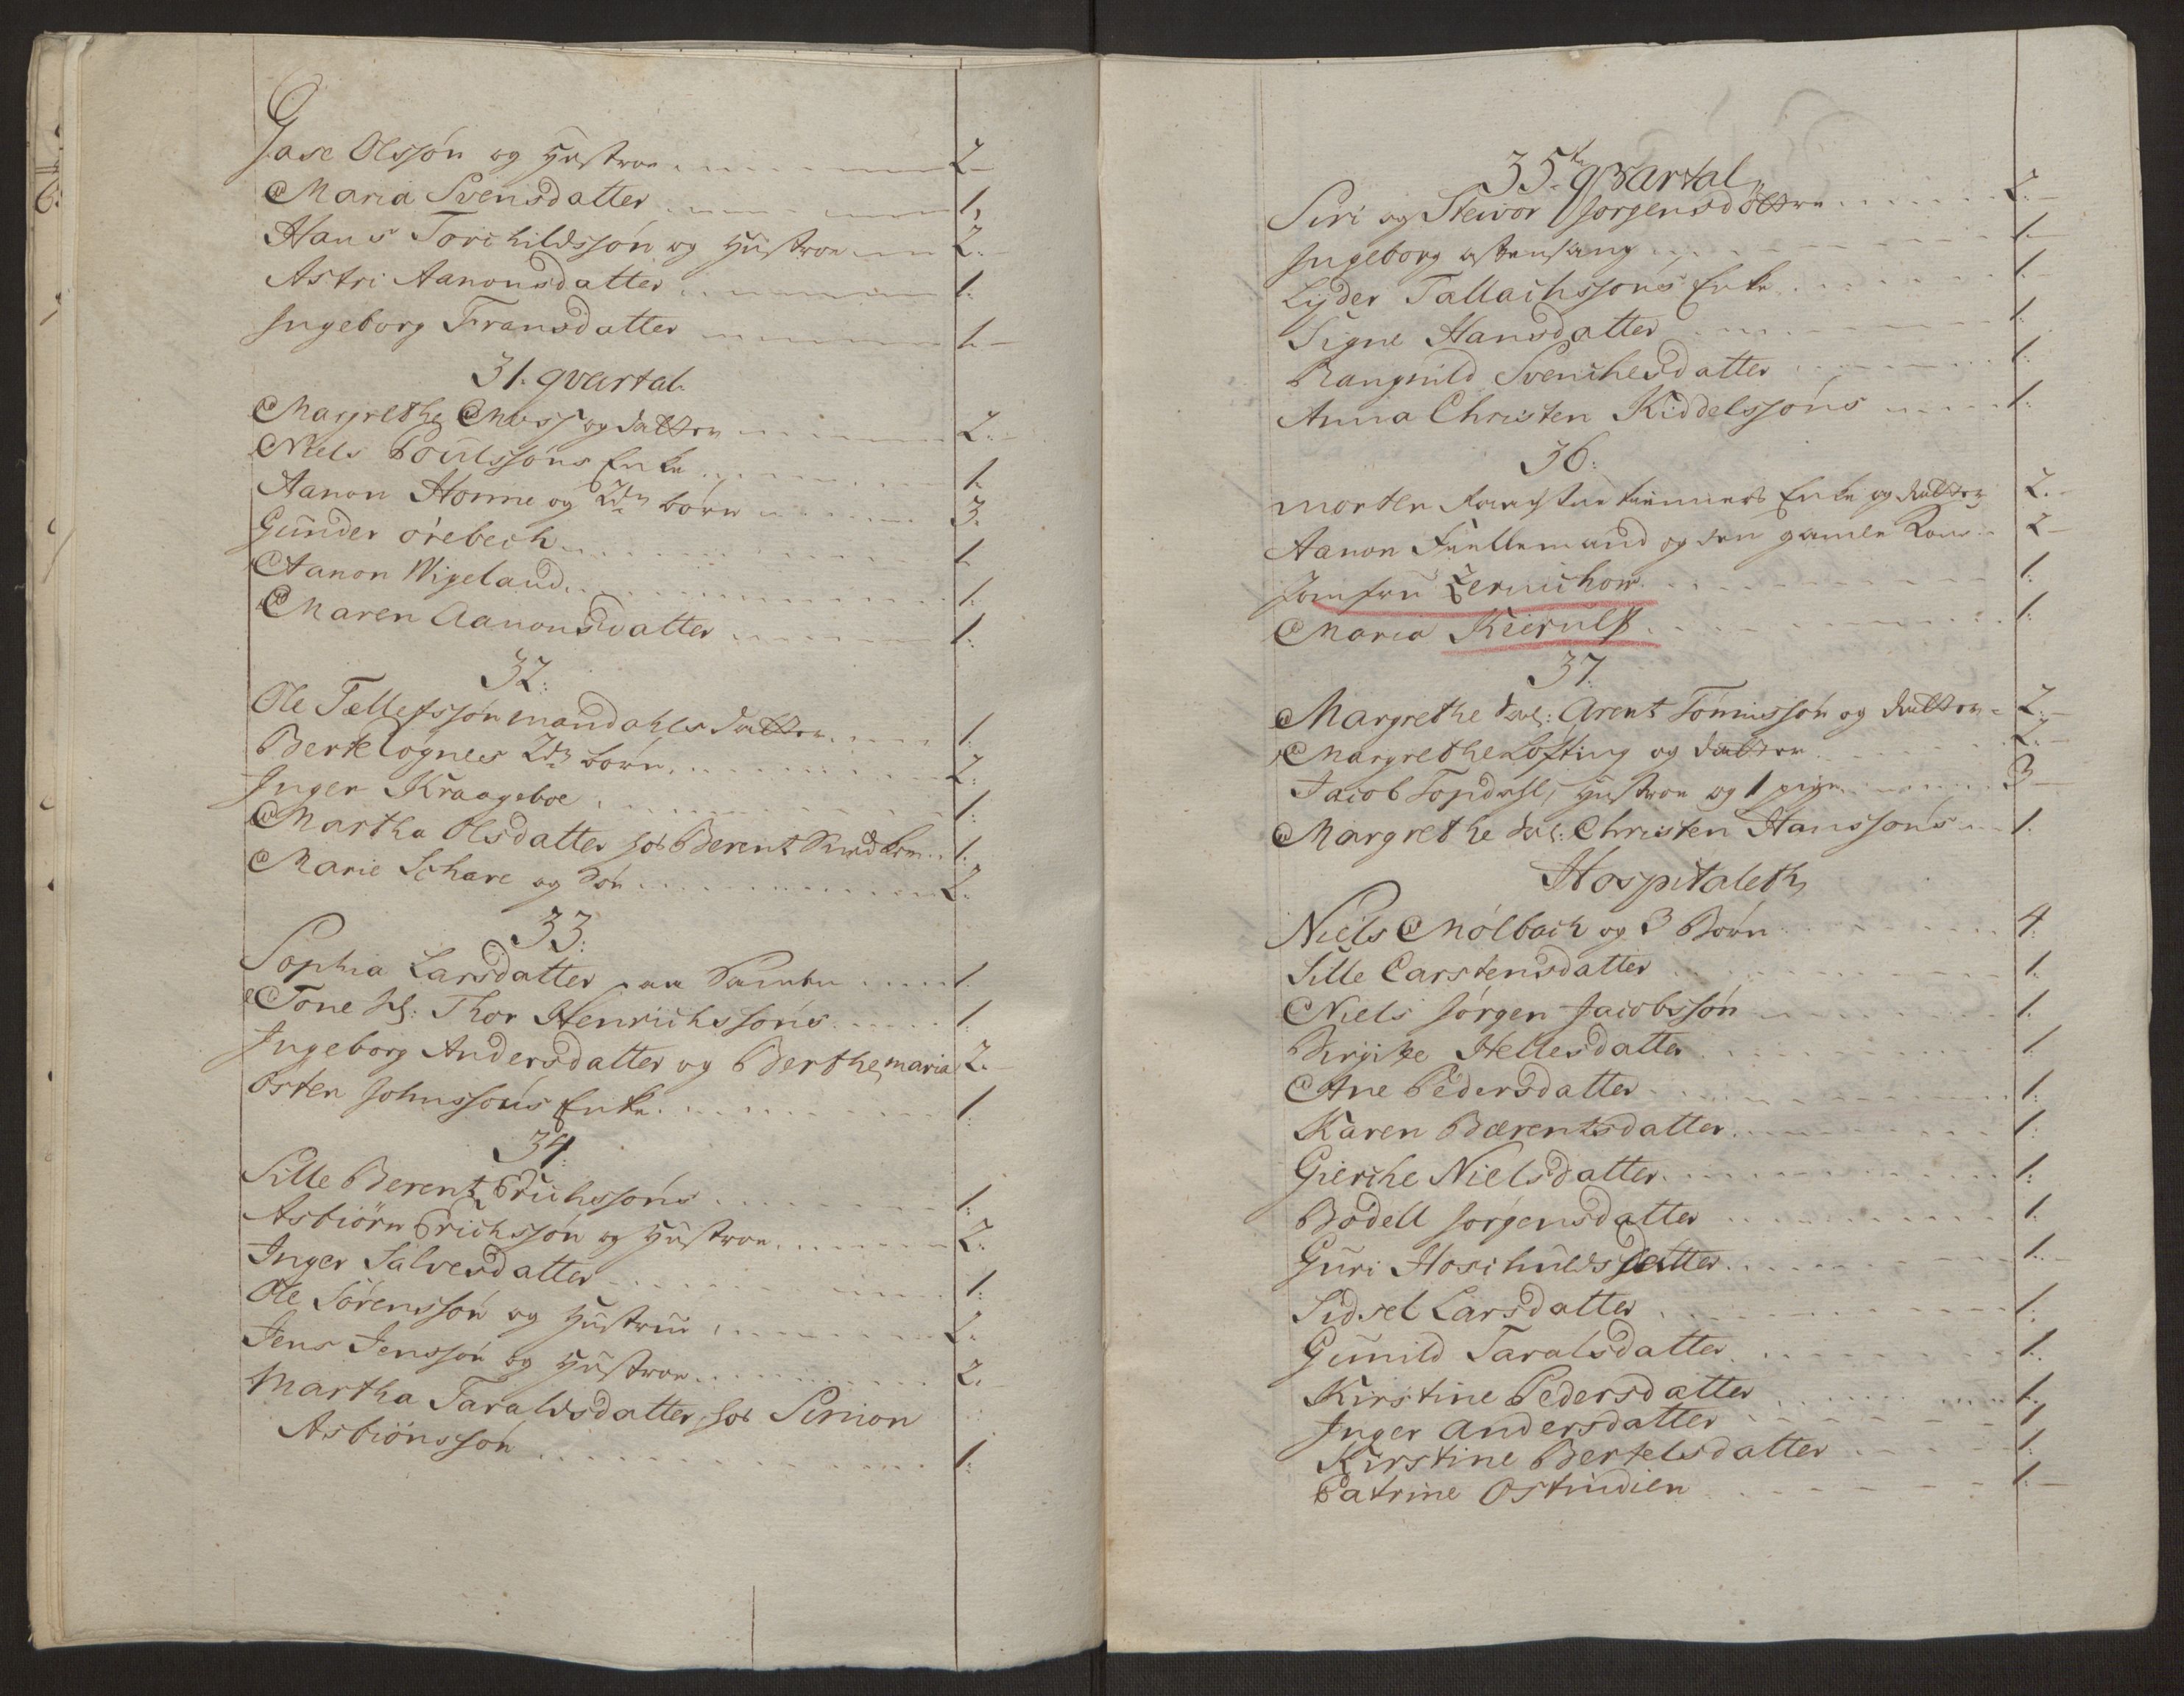 Jase Olssøn og Hustroe 2
Maria Svensdatter 1,
Hans Torchildssøn og Hustroe 2.
Astri Aanonsdatter 1.
Ingeborg Fransdatter 1.
31. qvartal
Margrethe Moss og datter 2.
Niels Poulssøns Enke 1.
Aanon Homme og 2de børn 3.
Gunder orebech 1
Aanon Wigeland 1.
Maren Aanonsdatter 1.
32.
Ole Tællefssøn mandahls datter 1.
Bertelognes 2de børn 2.
Inger Kraageboe 1.
Martha Olsdatter hos Berent 1.
Marie Schare og Søn 2.
33.
Sophia Larsdatter paa 1.
Tone Sl: Thor Henrichssøns 1.
Ingeborg Andersdatter og Berthe maria 2.
Osten Johnssøns Enke 1.
34.
Sille Berent Erichssøns 1.
Asbiørn Erichssøn og Hustroe 2.
Inger Salvesdatter 1.
Ole Sørenssøn og Hustrue 2.
Jens Jenssøn og Hustroe 2.
Martha Taraldsdatter, hos Simon
Asbiönssøn 1.
35te qvartal
Siri og Steivor Jorgensdøttre 2.
Ingeborg 1.
Lyder Tallachssøns Enke 1.
Signe Hansdatter 1.
Rangnild Svenchesdatter 1.
Anna Christen Kiddelssøns 1.
36.
morten Enke og datter 2.
Aanon Fuellemand og den gamle Kone 2
Jomfru Zernichow 1.
Maria Kierulf 1.
37.
Margrethe Sal: Arent Tønnissøn og datter 2.
Margrethe Lofting og datter 2.
Jacob Topdahl, Hustroe og 1 pige 3
Margrethe Sal: Christen Hanssøns 1.
Hospitaleth
Niels Mölbach og 3 Børn 4.
Sille Carstensdatter 1.
Niels Jørgen Jacobssøn 1.
Birgite Hellesdatter 1
Ane Pedersdatter 1.
Karen Bærentsdatter 1.
Gierche Nielsdatter 1.
Bodell Jorgensdatter 1.
Guri Hoschulds datter 1.
Sidsel Larsdatter 1.
Gunild Taralsdatter 1.
Kirstine Pedersdatter 1.
Inger Andersdatter 1
Kirstine Bertelsdatter 1.
Catrine Ostindien 1.